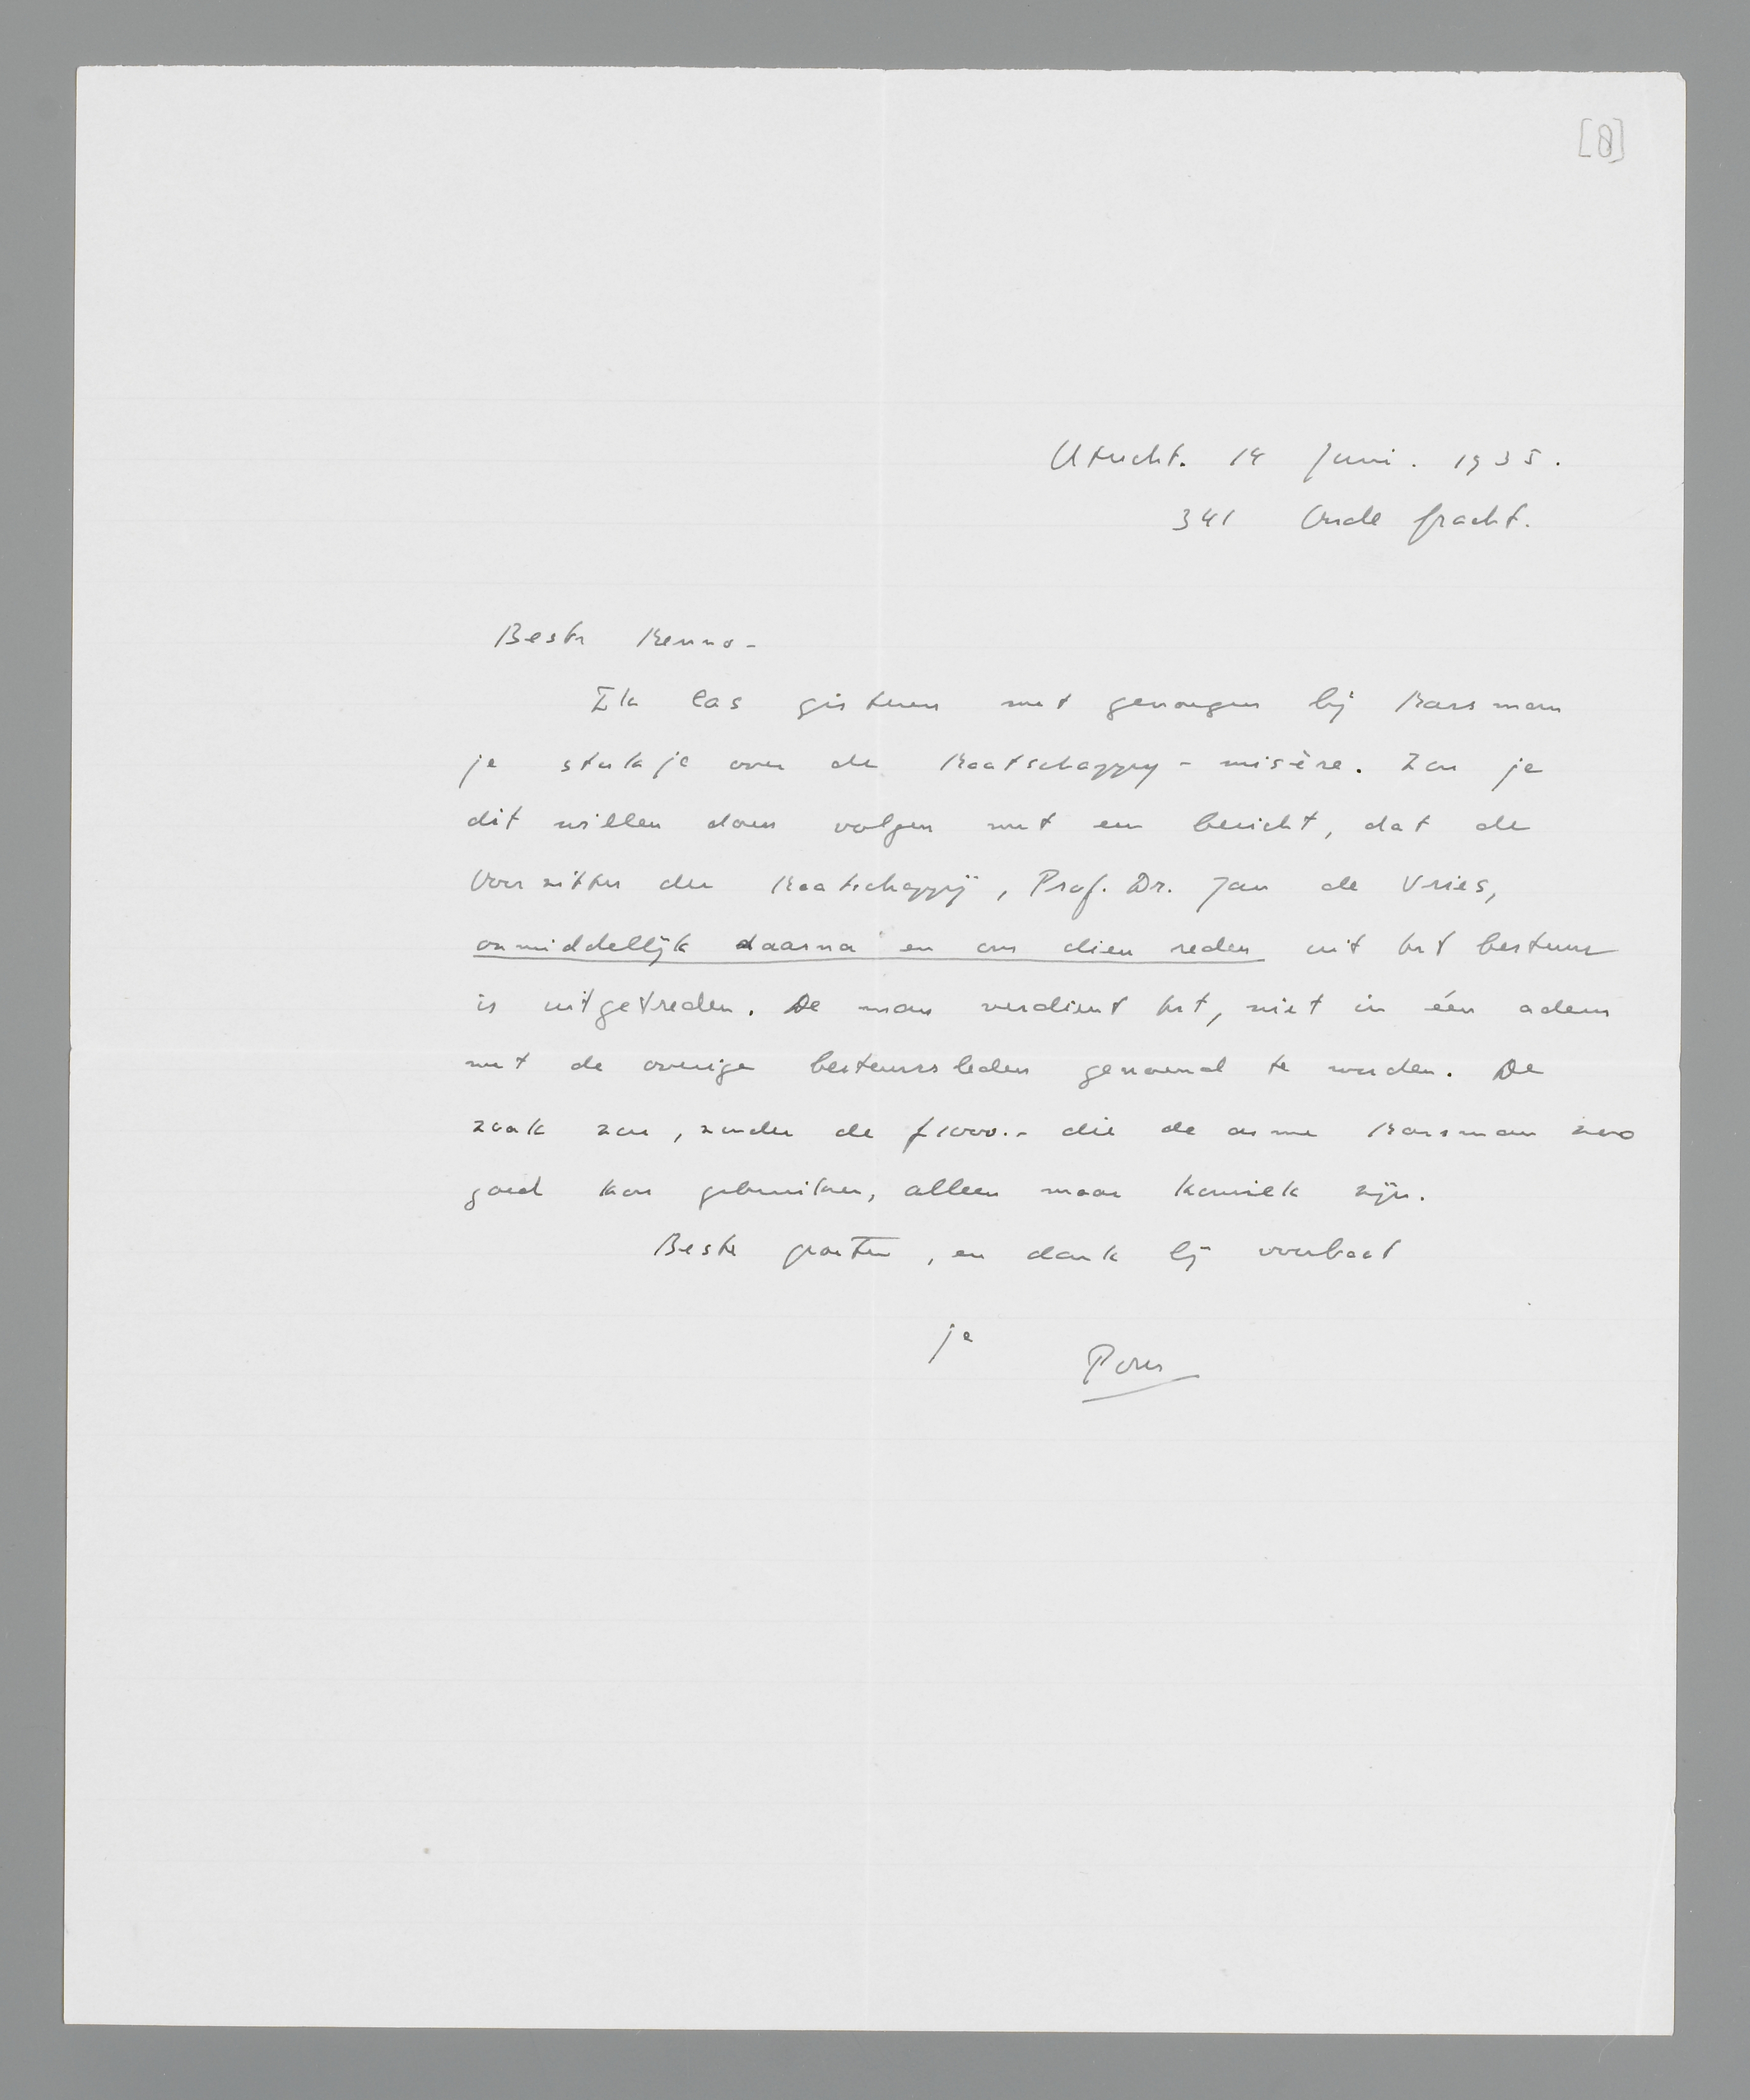 [8]
Utrecht. 14 Juni. 1935.
341 Oude gracht.
Beste Menno-
Ik las gisteren met genoegen bij Marsman
je stukje over de Maatschappij-misère. Zou je
dit willen doen volgen met een bericht, dat de
Voorzitter der Maatschappij, Prof. Dr. Jan de Vries,
onmiddellijk daarna en om dien reden uit het bestuur
is uitgetreden. De man verdient het, niet in één adem
met de overige bestuursleden genoemd te worden. De
zaak zou, zonder de f1000.- die de arme Marsman zoo
goed kon gebruiken, alleen maar komiek zijn.
Beste groeten, en dank bij voorbaat
je